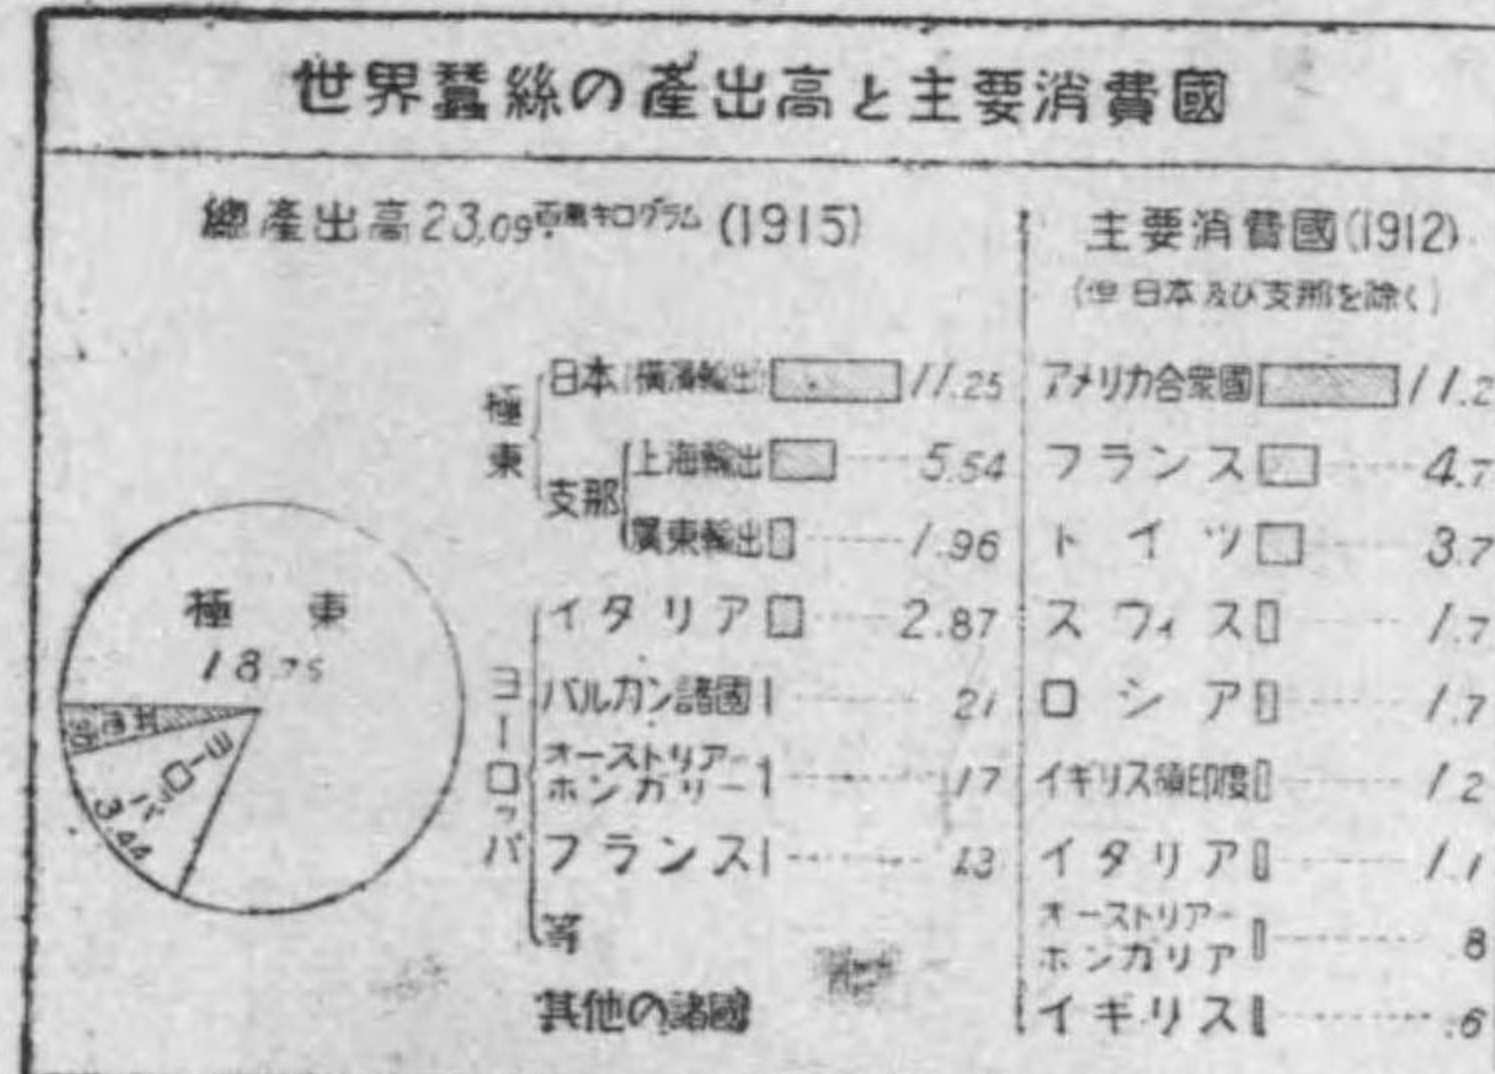 世界蠶絲の產出高と主要消費國
總產出高23,09百萬キログラム (1915)
極東
日本(橫濱輸出) 11.25
支那
上海輸出 5.54
廣東輸出 1.96
ヨーロッパ
イタリア 2.87
バルカン諸國 21
オーストリアーホンガリー 17
フランス 13
等
其他の諸國
極 東
18.75
其他
ヨーロッパ
3.44
主要消費國(1912)
(但日本及び支那を除く)
アメリカ合衆國 11.2
フランス 4.7
ドイツ 3.7
スウィス 1.7
ロシア 1.7
イギリス領印度 1.2
イタリア 1.1
オーストリアーホンガリア 8
イギリス .6